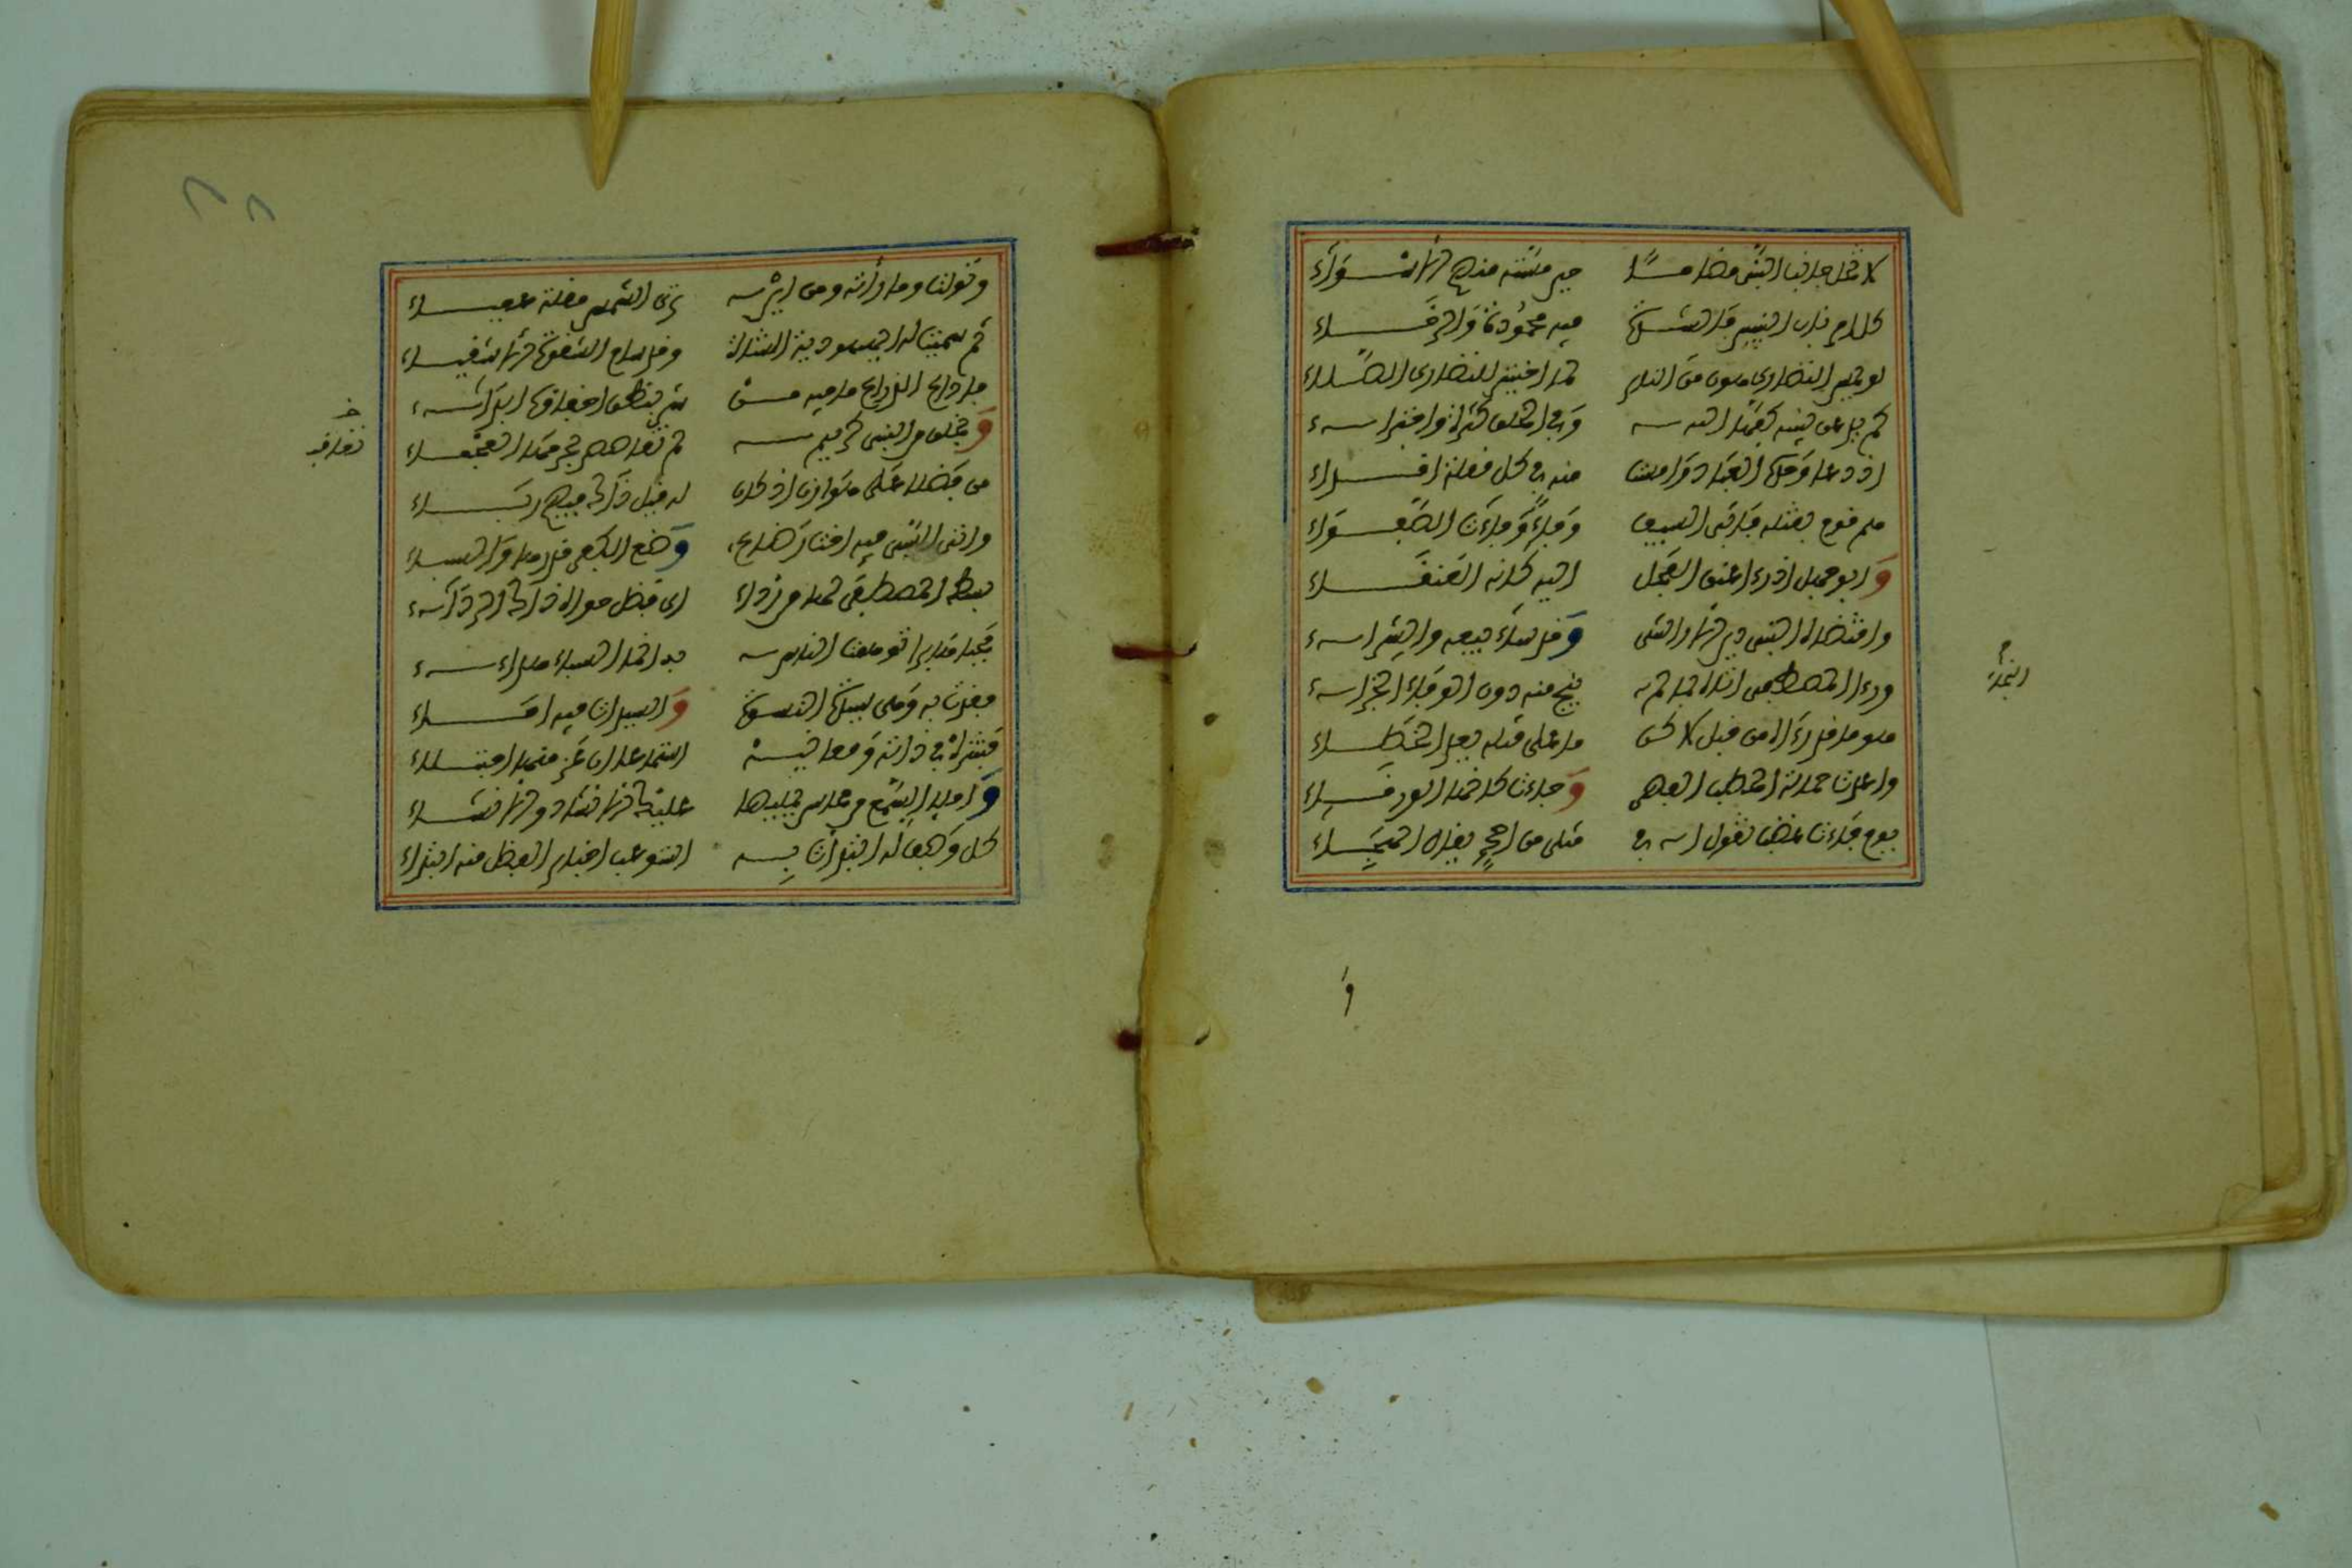 لا تخل جانب النبي مضاما حين مسته منهم الأسواء
كل أمر ناب النبيين فالشدة فيه محمودة والرخاء
لو يمس النضار هون من النار لما اختير للنضار الصلاء
كم يد عن نبيه كفها الله وفي الخلق كثرة واجتراء
إذ دعا وحده العباد وأمست منه في كل مقلة أقذاء
هم قوم بقتله فأبى السيف وفاء وفاءت الصفواء
وأبو جهل إذ رأى عنق الفحل إليه كأنه العنقاء
واقتضاه النبي دين الإراشي وقد ساء بيعه والشراء
ورأى المصطفى أتاه بما لم ينج منه دون الوفاء النجاء
هو ما قد رآه من قبل لكن ما على مثله يعد الخطاء
وأعدت حمالة الحطب الفهر وجاءت كأنها الورقاء
يوم جاءت غضبى تقول أفي مثلي من أحمد يقال الهجاء
النجاء
و
وتولت وما رأته ومن أين ترى الشمس مقلة عمياء
ثم سمت له اليهودية الشاة وقد سام الشقوة الأشقياء
فأذاع الذراع ما فيه من شر بنطق إخفاؤه إبداء
وبخلق من النبي كريم لم تقاصص بجرحها العجماء
من فضلا على هوازن إذ كان له قبل ذاك فيهم رباء
وأتى السبي فيه أخت رضاع وضع الكفر قدرها والسباء
بسط المصطفى لها من رداء أي فضل حواه ذاك الرداء
فحباها برا توهمت الناس به أنما السباء هداء
فغدت به وهي سيدة النسوة والسيدات فيه إماء
فتنزه في ذاته ومعانيه استماعا إن عز منها اجتلاء
واملأ السمع من محاسن يمليها عليك الإنشاد والإنشاء
كل وصف له ابتدأت به استوعب أخبار الفضل منه ابتداء